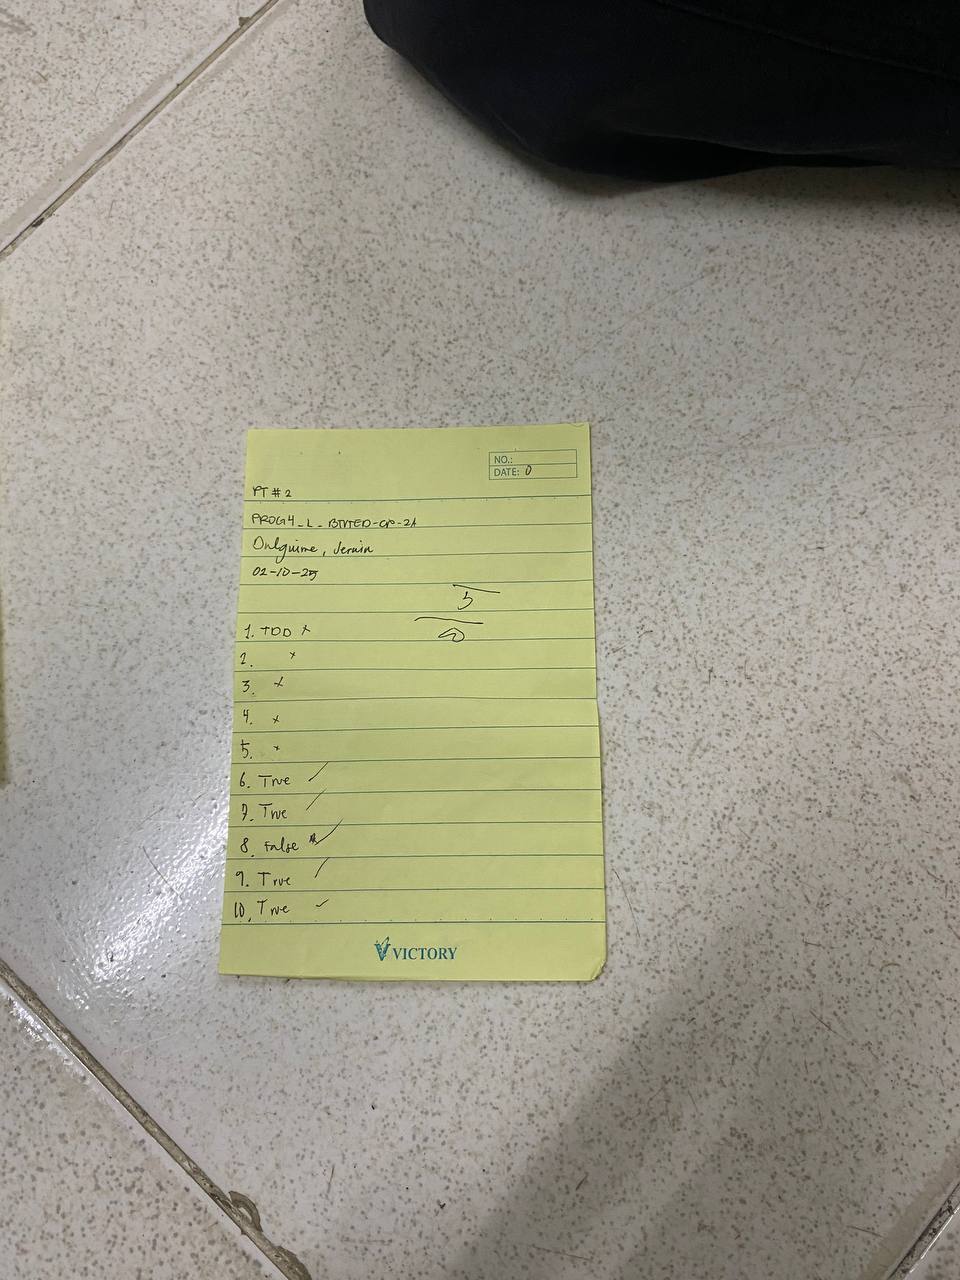 NO.:
DATE: 0
PT # 2
PROG4_L_BTVTED-CP-2A
, Jerwin
02-10-25
5
1. TDD x
2. x
3. x
4. x
5. x
6. True ✓
7. True ✓
8. False ✓
9. True ✓
10. True ✓
VICTORY